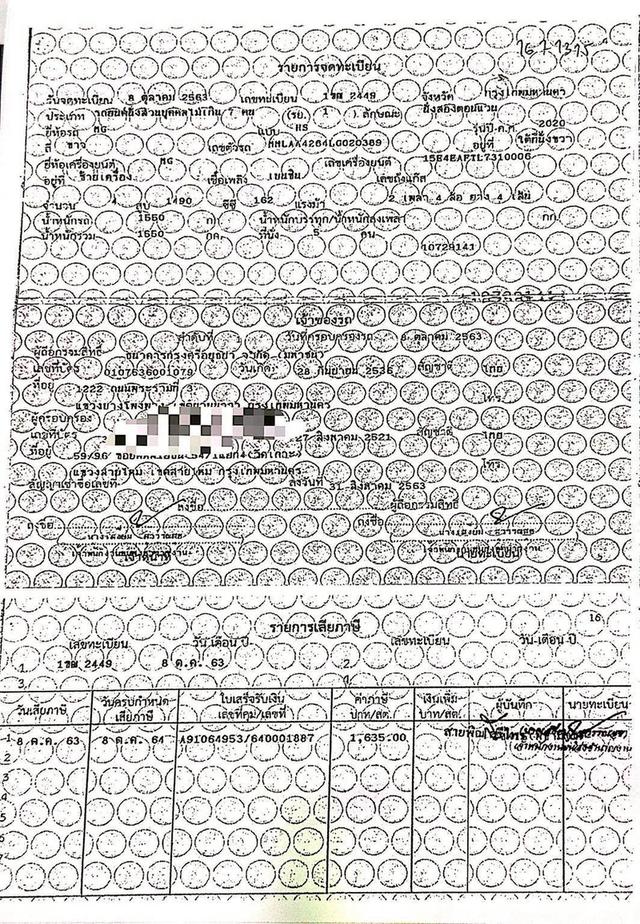 รายการจดทะเบียน
วันจดทะเบียน 8 ตุลาคม 2563 เลขทะเบียน 1ขฒ 2449 จังหวัด กรุงเทพมหานคร
ประเภท รถยนต์นั่งส่วนบุคคลไม่เกิน 7 คน (รย. 1 ) ลักษณะ นั่งสองตอนแวน
ยี่ห้อรถ MG แบบ HS รุ่นปี ค.ศ. 2020
สี ขาว เลขตัวรถ อยู่ที่ ใต้ที่นั่งขวา
ยี่ห้อเครื่องยนต์ MG เลขเครื่องยนต์
อยู่ที่ ซ้ายเครื่อง เชื้อเพลิง เบนซิน เลขถังแก๊ส
จำนวน 4 สูบ 1490 ซีซี 162 แรงม้า 2 เพลา 4 ล้อ ยาง 4 เส้น
น้ำหนักรถ 1550 กก. น้ำหนักบรรทุก/น้ำหนักลงเพลา กก.
น้ำหนักรวม 1550 กก. ที่นั่ง 5 คน
10729141
เจ้าของรถ
ลำดับที่ 1 วันที่ครอบครองรถ 8 ตุลาคม 2563
ผู้ถือกรรมสิทธิ์ ธนาคารกรุงศรีอยุธยา จำกัด (มหาชน)
เลขที่บัตร 0107536001079 วันเกิด 28 กันยายน 2536 สัญชาติ ไทย
ที่อยู่ 1222 ถนนพระรามที่ 3
แขวงบางโพงพาง เขตยานนาวา กรุงเทพมหานคร โทร
ผู้ครอบครอง
เลขที่บัตร 27 สิงหาคม 2521 สัญชาติ ไทย
ที่อยู่ 59/96
แขวงสายไหม เขตสายไหม กรุงเทพมหานคร โทร
สัญญาเช่าซื้อเลขที่ ลงวันที่ 31 สิงหาคม 2563
ลงชื่อ ผู้ถือกรรมสิทธิ์
ลงชื่อ ลงชื่อ
เจ้าหน้าที่ นายทะเบียน
16
รายการเสียภาษี
เลขทะเบียน วัน เดือน ปี เลขทะเบียน วัน เดือน ปี
1. 1ขฒ 2449 8 ต.ค. 63 2.
3.
วันเสียภาษี วันครบกำหนดเสียภาษี ใบเสร็จรับเงิน เลขที่คุม/เลขที่ ค่าภาษี บาท/สต. เงินเพิ่ม บาท/สต. ผู้บันทึก นายทะเบียน
1 8 ต.ค. 63 8 ต.ค. 64 A91064953/640001887 1,635.00
2
4
5
6
7